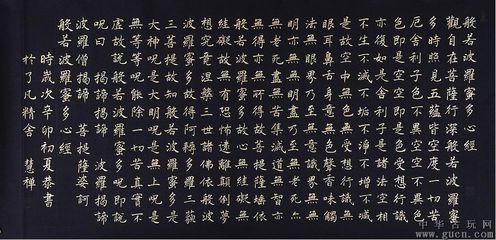 般若波羅蜜多心經
觀自在菩薩行深般若波羅蜜
多時照見五蘊皆空度一切苦
厄舍利子色不異空空不異色
色即是空空即是色受想行識
亦復如是舍利子是諸法空相
不生不滅不垢不淨不增不減
是故空中無色無受想行識無
眼耳鼻舌身意無色聲香味觸
法無眼界乃至無意識界無無
明亦無無明盡乃至無老死亦
無老死盡無苦集滅道無智亦
無得以無所得故菩提薩埵依
般若波羅蜜多故心無罣礙無
罣礙故無有恐怖遠離顛倒夢
想究竟涅槃三世諸佛依般若
波羅蜜多故得阿耨多羅三藐
三菩提故知般若波羅蜜多是
大神呪是大明呪是無上呪是
無等等呪能除一切苦真實不
虛故說般若波羅蜜多呪即說
呪曰 揭諦揭諦 波羅揭諦
波羅僧揭諦 菩提薩婆訶
般若波羅蜜多心經
時歲次辛卯初夏恭書
於了凡精舍 慧禪
中华古玩网
www.gucn.com